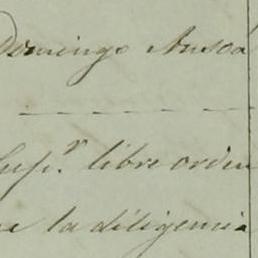 Domingo Ansoa
Sup.r libre orden
la diligencia